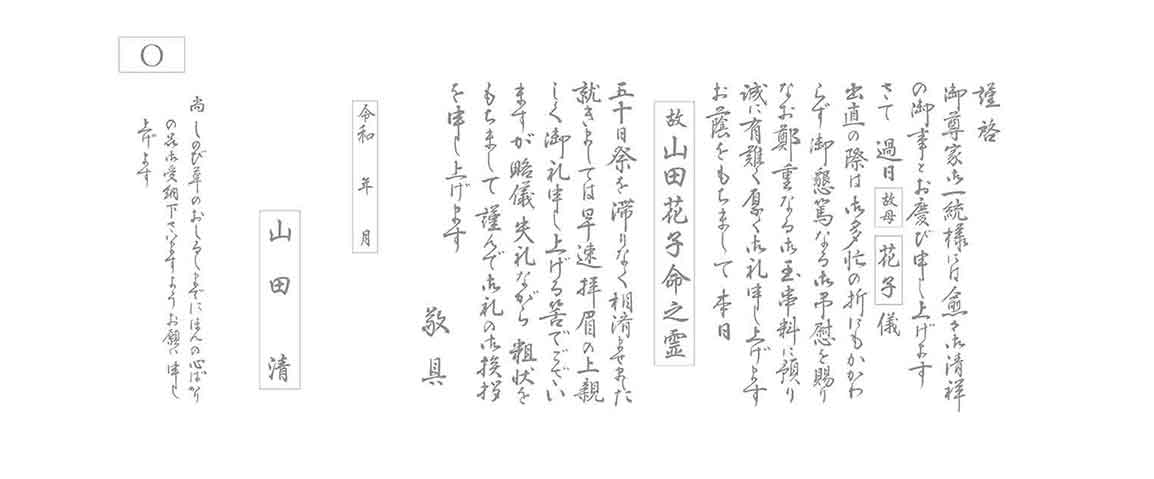 謹啓
御尊家御一統様には愈々御清祥
の御事とお慶び申し上げます
さて 過日 故母 花子 儀
出直の際は御多忙の折にもかかわ
らず御懇篤なる御弔慰を賜り
なお鄭重なる御玉串料に預り
誠に有難く厚く御礼申し上げます
お蔭をもちまして 本日
故 山田花子命之霊
五十日祭を滞りなく相済ませました
就きましては早速拝眉の上親
しく御礼申し上げる筈でござい
ますが略儀失礼ながら 粗状を
もちまして 謹んで御礼の御挨拶
を申し上げます
敬具
令和 年 月
山田 清
尚 しのび草のおしるしまでにほんの心ばかり
の品御受納下さいますようお願い申し
上げます
〇